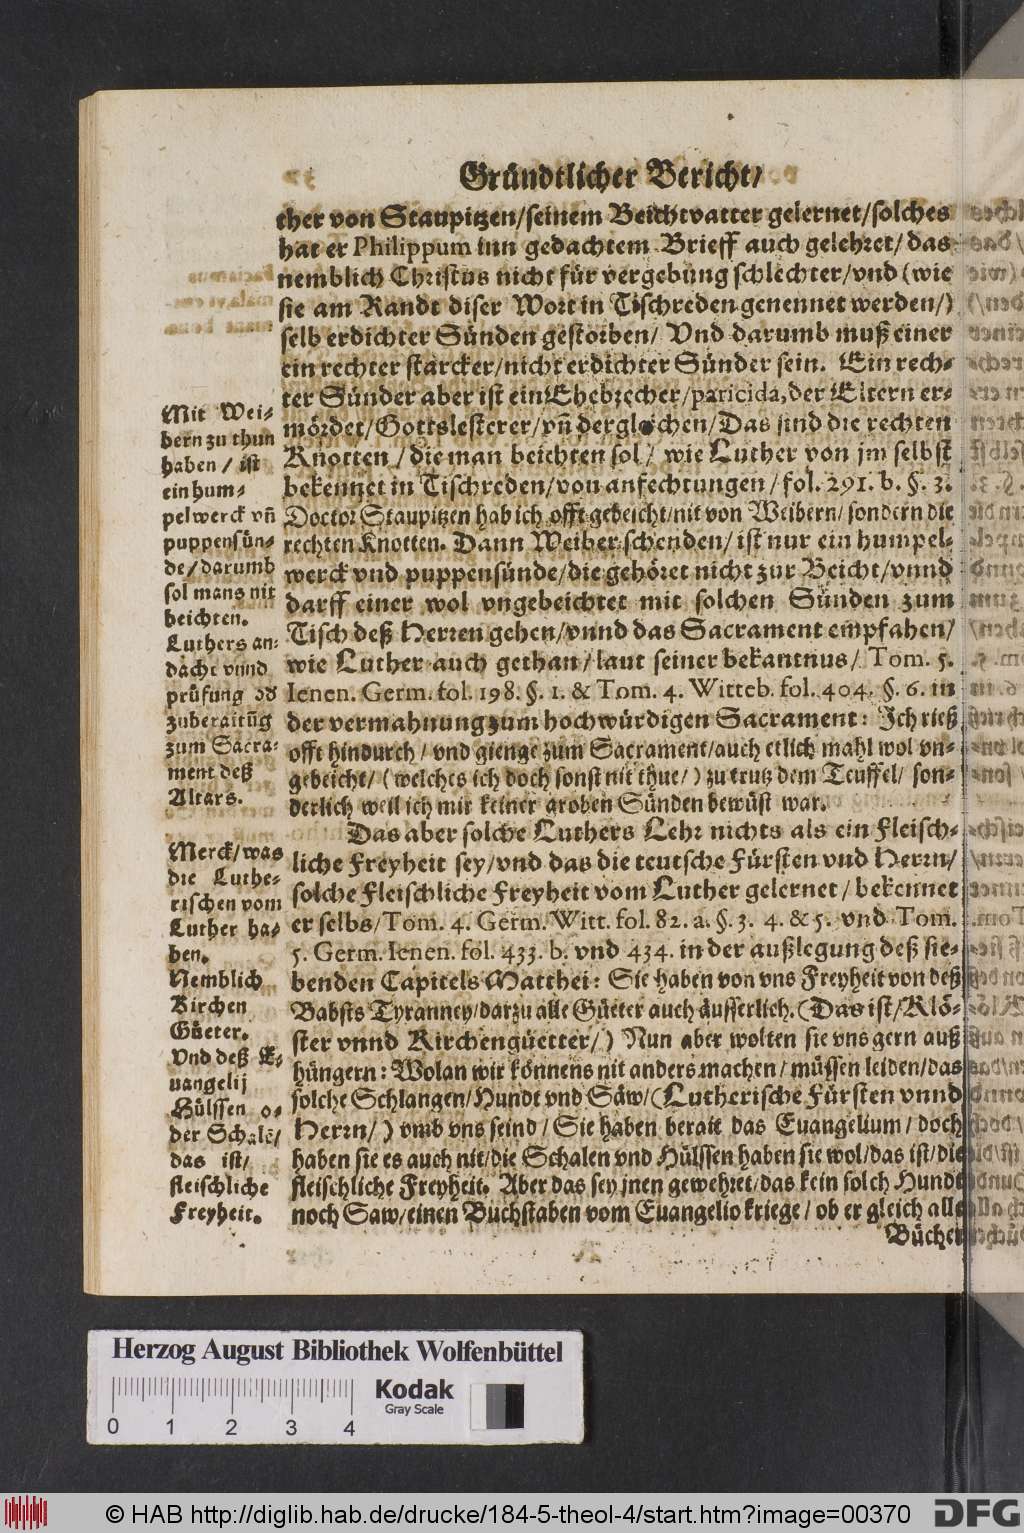 Gründtlicher Bericht/
ther von Staupitzen/seinem Beichtvatter gelernet/solches
hat er Philippum inn gedachtem Brieff auch gelehret/das
nemblich Christus nicht für vergebung schlechter/vnd (wie
sie am Randt diser Wort in Tischreden genennet werden/)
selb erdichter Sünden gestorben/ Vnd darumb muß einer
ein rechter starcker/nicht erdichter Sünder sein. Ein rech-
ter Sünder aber ist ein Ehebrecher/paricida, der Eltern er-
mördet/Gottslesterer/vñ dergleichen/Das sind die rechten
Knotten/die man beichten sol/ wie Luther von jm selbst
bekennet in Tischreden/von anfechtungen/fol. 291. b. §. 3.
Doctor Staupitzen hab ich offt gebeicht/nit von Weibern/sondern die
rechten Knotten. Dann Weiber schenden/ist nur ein humpel-
werck vnd puppensünde/die gehöret nicht zur Beicht/vnnd
darff einer wol vngebeichtet mit solchen Sünden zum
Tisch deß Herren gehen/vnnd das Sacrament empfahen/
wie Luther auch gethan/laut seiner bekantnus/ Tom. 5.
Ienen. Germ. fol. 198. §. 1. & Tom. 4. Witteb. fol. 404. §. 6. in
der vermahnung zum hochwürdigen Sacrament: Ich rieß
offt hindurch/ vnd gienge zum Sacrament/auch etlich mahl wol vn-
gebeicht/(welches ich doch sonst nit thue/) zu trutz dem Teuffel/ son-
derlich weil ich mir keiner groben Sünden bewüst war.
Das aber solche Luthers Lehr nichts als ein Fleisch-
liche Freyheit sey/vnd das die teutsche Fürsten vnd Herrn/
solche Fleischliche Freyheit vom Luther gelernet/bekennet
er selbs/Tom. 4. Germ. Witt. fol. 82. a. §. 3. 4. & 5. vnd Tom.
5. Germ. Ienen. fol. 433. b. vnd 434. in der außlegung deß sie-
benden Capitels Matthei: Sie haben von vns Freyheit von deß
Babsts Tyranney/darzu alle Güeter auch äusserlich. (Das ist/Klö-
ster vnnd Kirchengüetter/) Nun aber wolten sie vns gern auß
hüngern: Wolan wir könnens nit anders machen/müssen leiden/das
solche Schlangen/Hundt vnd Säw/(Lutherische Fürsten vnnd
Herrn/) vmb vns seind/ Sie haben berait das Euangelium/doch
haben sie es auch nit/die Schalen vnd Hülssen haben sie wol/das ist/die
fleischliche Freyheit. Aber das sey jnen gewehret/das kein solch Hundt
noch Saw/einen Buchstaben vom Euangelio kriege/ ob er gleich alle
Bücher
Mit Wei-
bern zu thun
haben/ ist
ein hum-
pelwerck vñ
puppensün-
de/darumb
sol mans nit
beichten.
Luthers an-
dacht vnnd
prüfung od
zuberaitũg
zum Sacra-
ment deß
Altars.
Merck/was
die Luthe-
rischen vom
Luther ha-
ben.
Nemblich
Kirchen
Güeter.
Vnd deß E-
uangelij
Hülssen o-
der Schalẽ/
das ist/
fleischliche
Freyheit.
Herzog August Bibliothek Wolfenbüttel
Kodak
Gray Scale
0 1 2 3 4
© HAB http://diglib.hab.de/drucke/184-5-theol-4/start.htm?image=00370
DFG